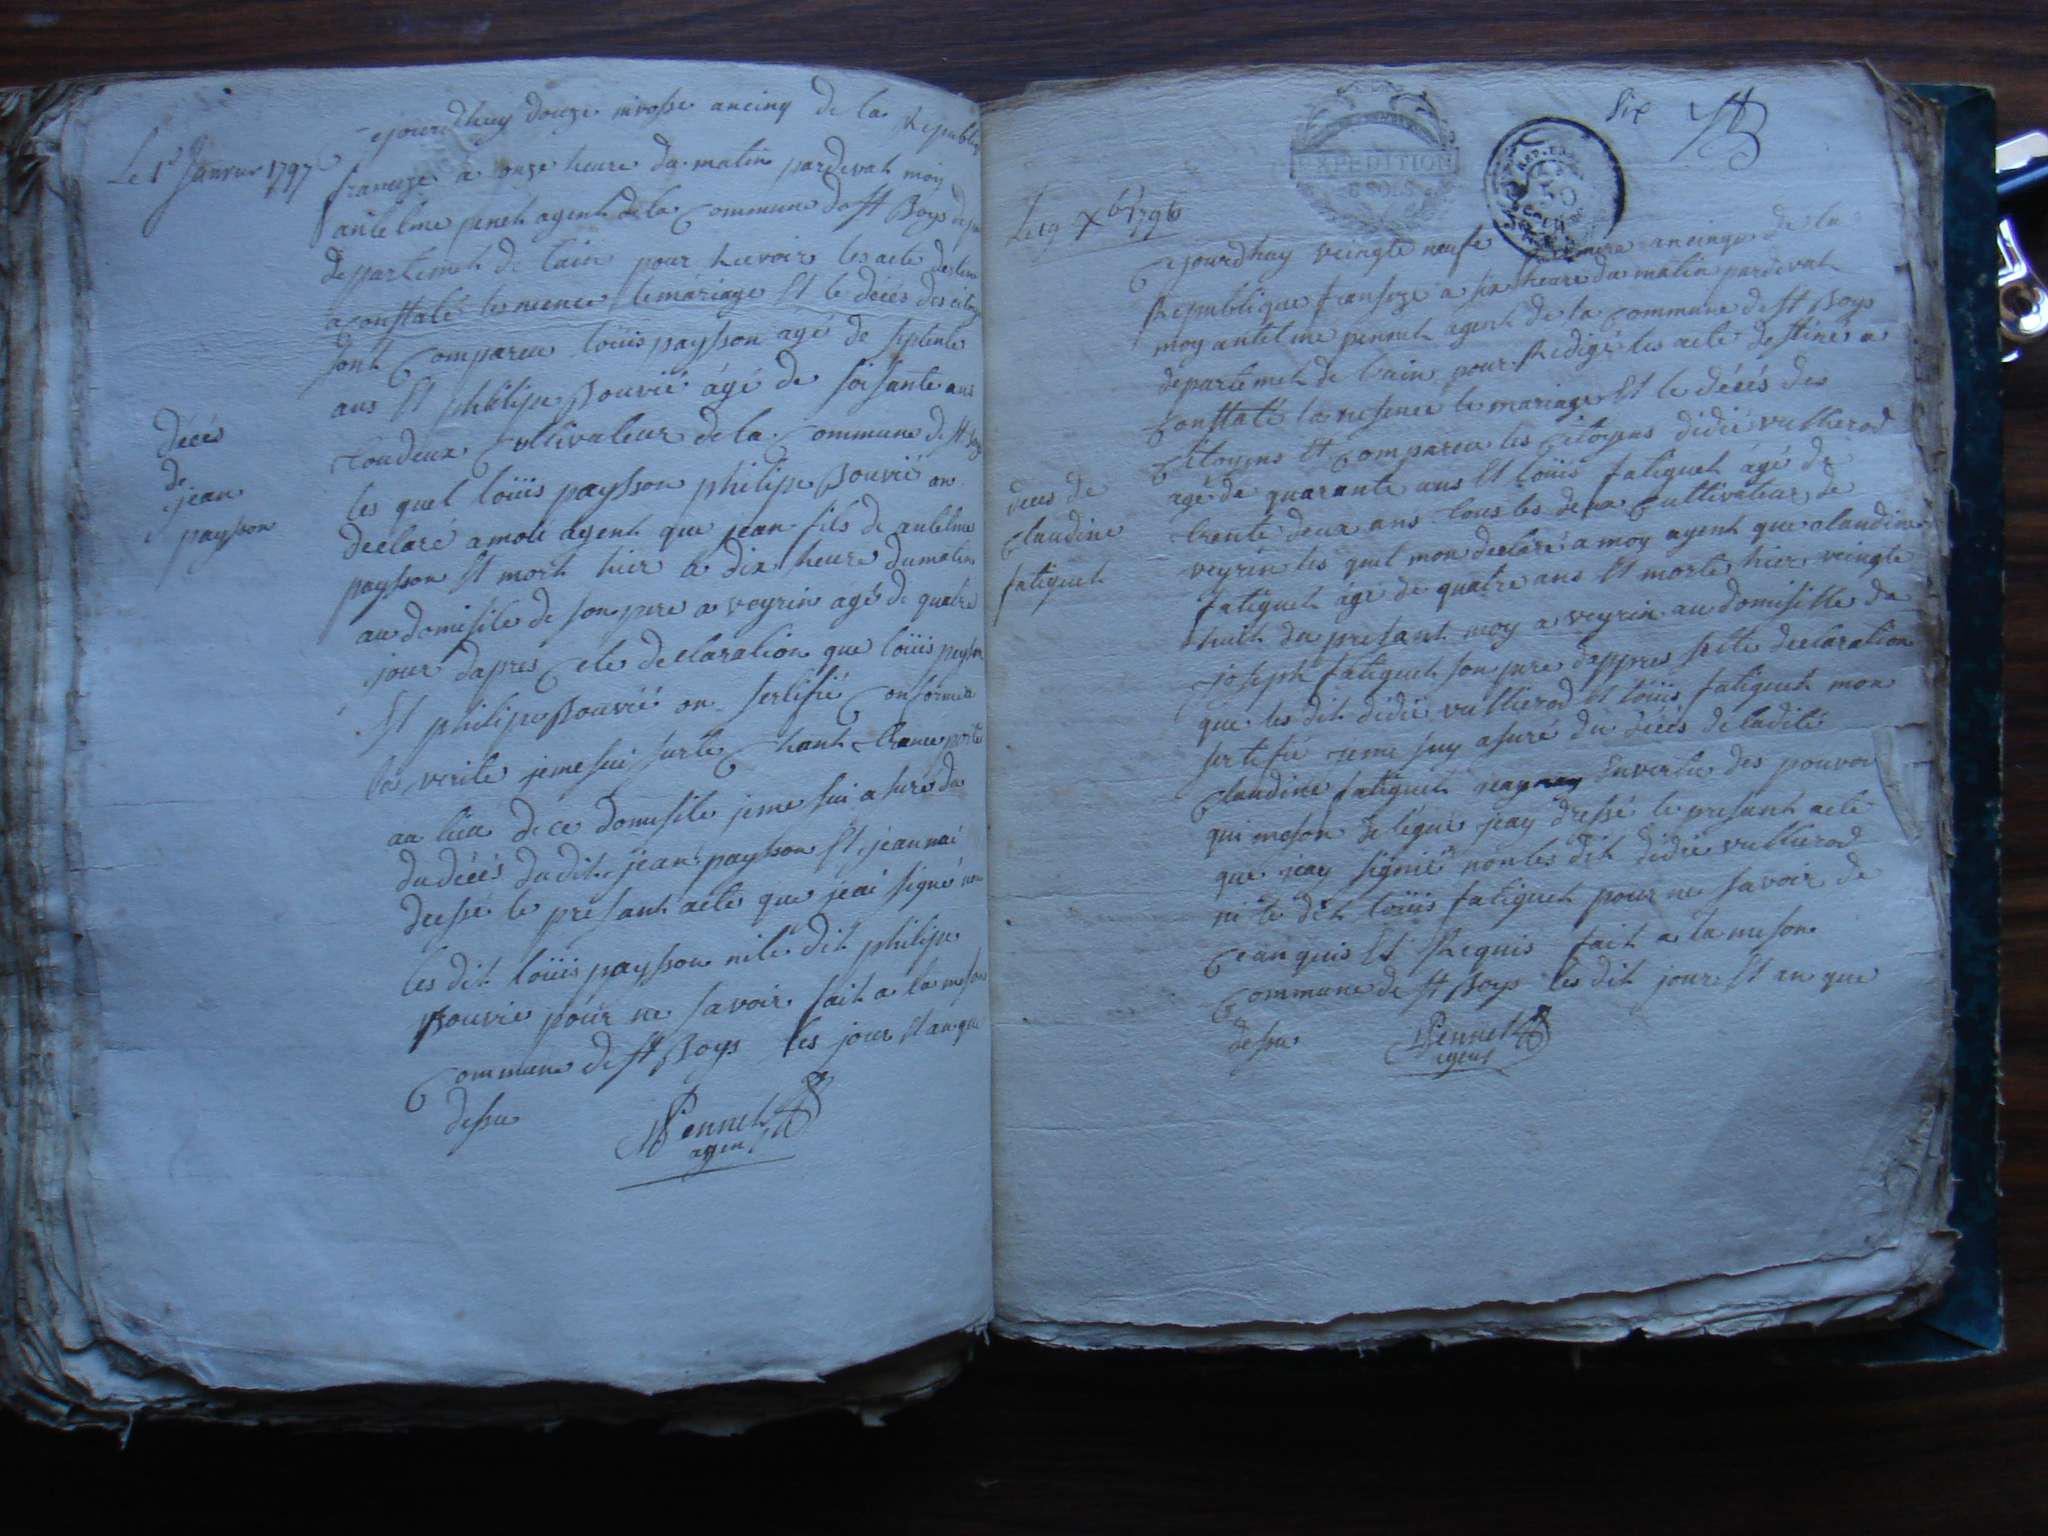 Le 1r Janvier 1797
Cejourdhuy douze nivosse ancinq de la Republiq
franceze a onze heure du matin pardevat moy
antelme penet agent de la Commune de St Boys
departemet de lain pour recevoir les acte destine
a Constaté les nience le mariage Et le décés des citoy
sont Compareu loüis paysson agé de septente
ans Et philipe Bouvié ágé de soisante ans
toudeux Cultivateur de la Commune de St boys
les quel loüis paysson philipe Bouvié on
declaré a moti agent que jean fils de antelme
paysson Et mort hier a dix heure dumatin
au domisile de son pere a veyrin agé de quatre
jour dapres Cete declaration que loüis paysson
Et philipe Bouvié on sertifié Conforme a
la verite jeme sui surle Chant transporté
au lieu de ce domisile jeme sui asure du
du décés dudit jean paysson Et jeannai
dressé le présant acte que jeai signé non
les dit loüis paysson nile dit philipe
Bouvie pour ne savoir fait a la meson
Commune de St Boys les jour Et an que
dessu
Pennet
agent
décés
de
jean
paysson
Six
EXPEDITION
Le 19 Xb 1796
Cejourdhuy veingte neufe ancinqe de la
Republique franseze a six heure du matin pardevat
moy antelme pennet agent de la Commune de St Boys
departemet de lain pour Redigé les acte destiné a
Constaté la nesence le mariage Et le décés des
Citoyens Et Compareu les Citoyens didié vullierod
agé de quarante ans Et loüis fatiguet ágé de
trente deux ans tous les deux Cultivateur de
veyrin les quel mon declaré a moy agent que claudine
fatiguet ágé de quatre ans Et morte hier veingte
huit du présant moy a veyrin au domisille da
joseph fatiguet son pere dappres sete declaration
que les dit didié vullierod Et loüis fatiguet mon
sertifié jeme suy asuré du décés de ladite
Claudine fatiguet Enverteu des pouvoi
qui meson delégué jeay dressé le presant acte
que jeay signié nonles dit didié vullierod
ni le dit loüis fatiguet pour ne savoir de
Ceanquis Et Requis fait a la meson
Commune de St Boys les dit jour Et an que
dessu
Pennet
agent
deces de
Claudine
fatiguet